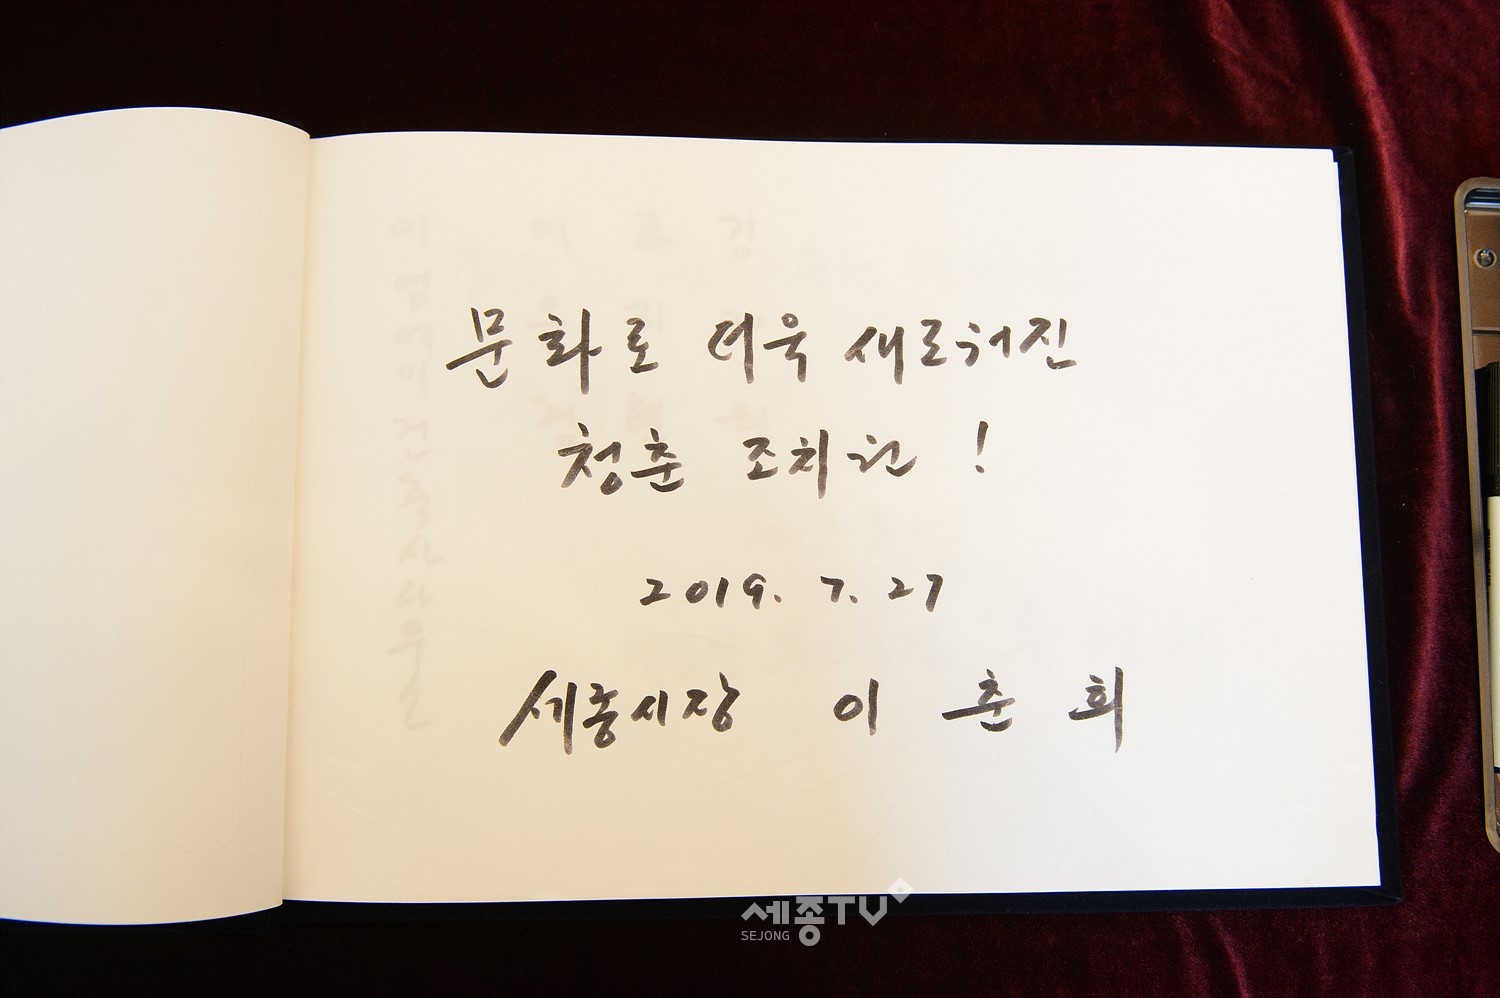 문화로 더욱 새로워진
청춘 조치원 !
2019. 7. 27
세종시장 이 춘 희
세종TV
SEJONG